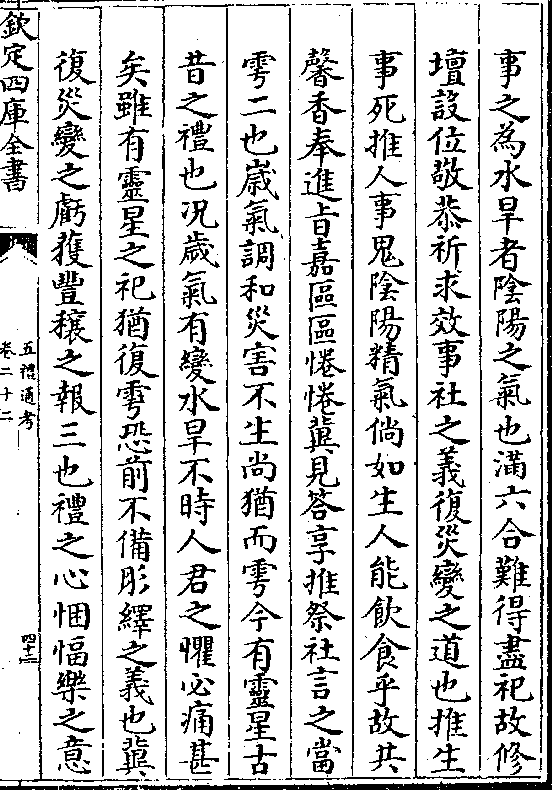 事之為水旱者陰陽之氣也滿六合難得盡祀故修
壇設位敬恭祈求效事社之義復災變之道也推生
事死推人事鬼陰陽精氣倘如生人能飲食乎故共
馨香奉進㫖嘉區區惓惓冀見答享推祭社言之當
雩二也嵗氣調和災害不生尚猶而雩今有靈星古
昔之禮也况歲氣有變水旱不時人君之懼必痛甚
矣雖有靈星之祀猶復雩恐前不備肜繹之義也冀
復災變之虧獲豐穰之報三也禮之心悃愊樂之意
欽定四庫全書
五禮通考
卷二十二
四十二